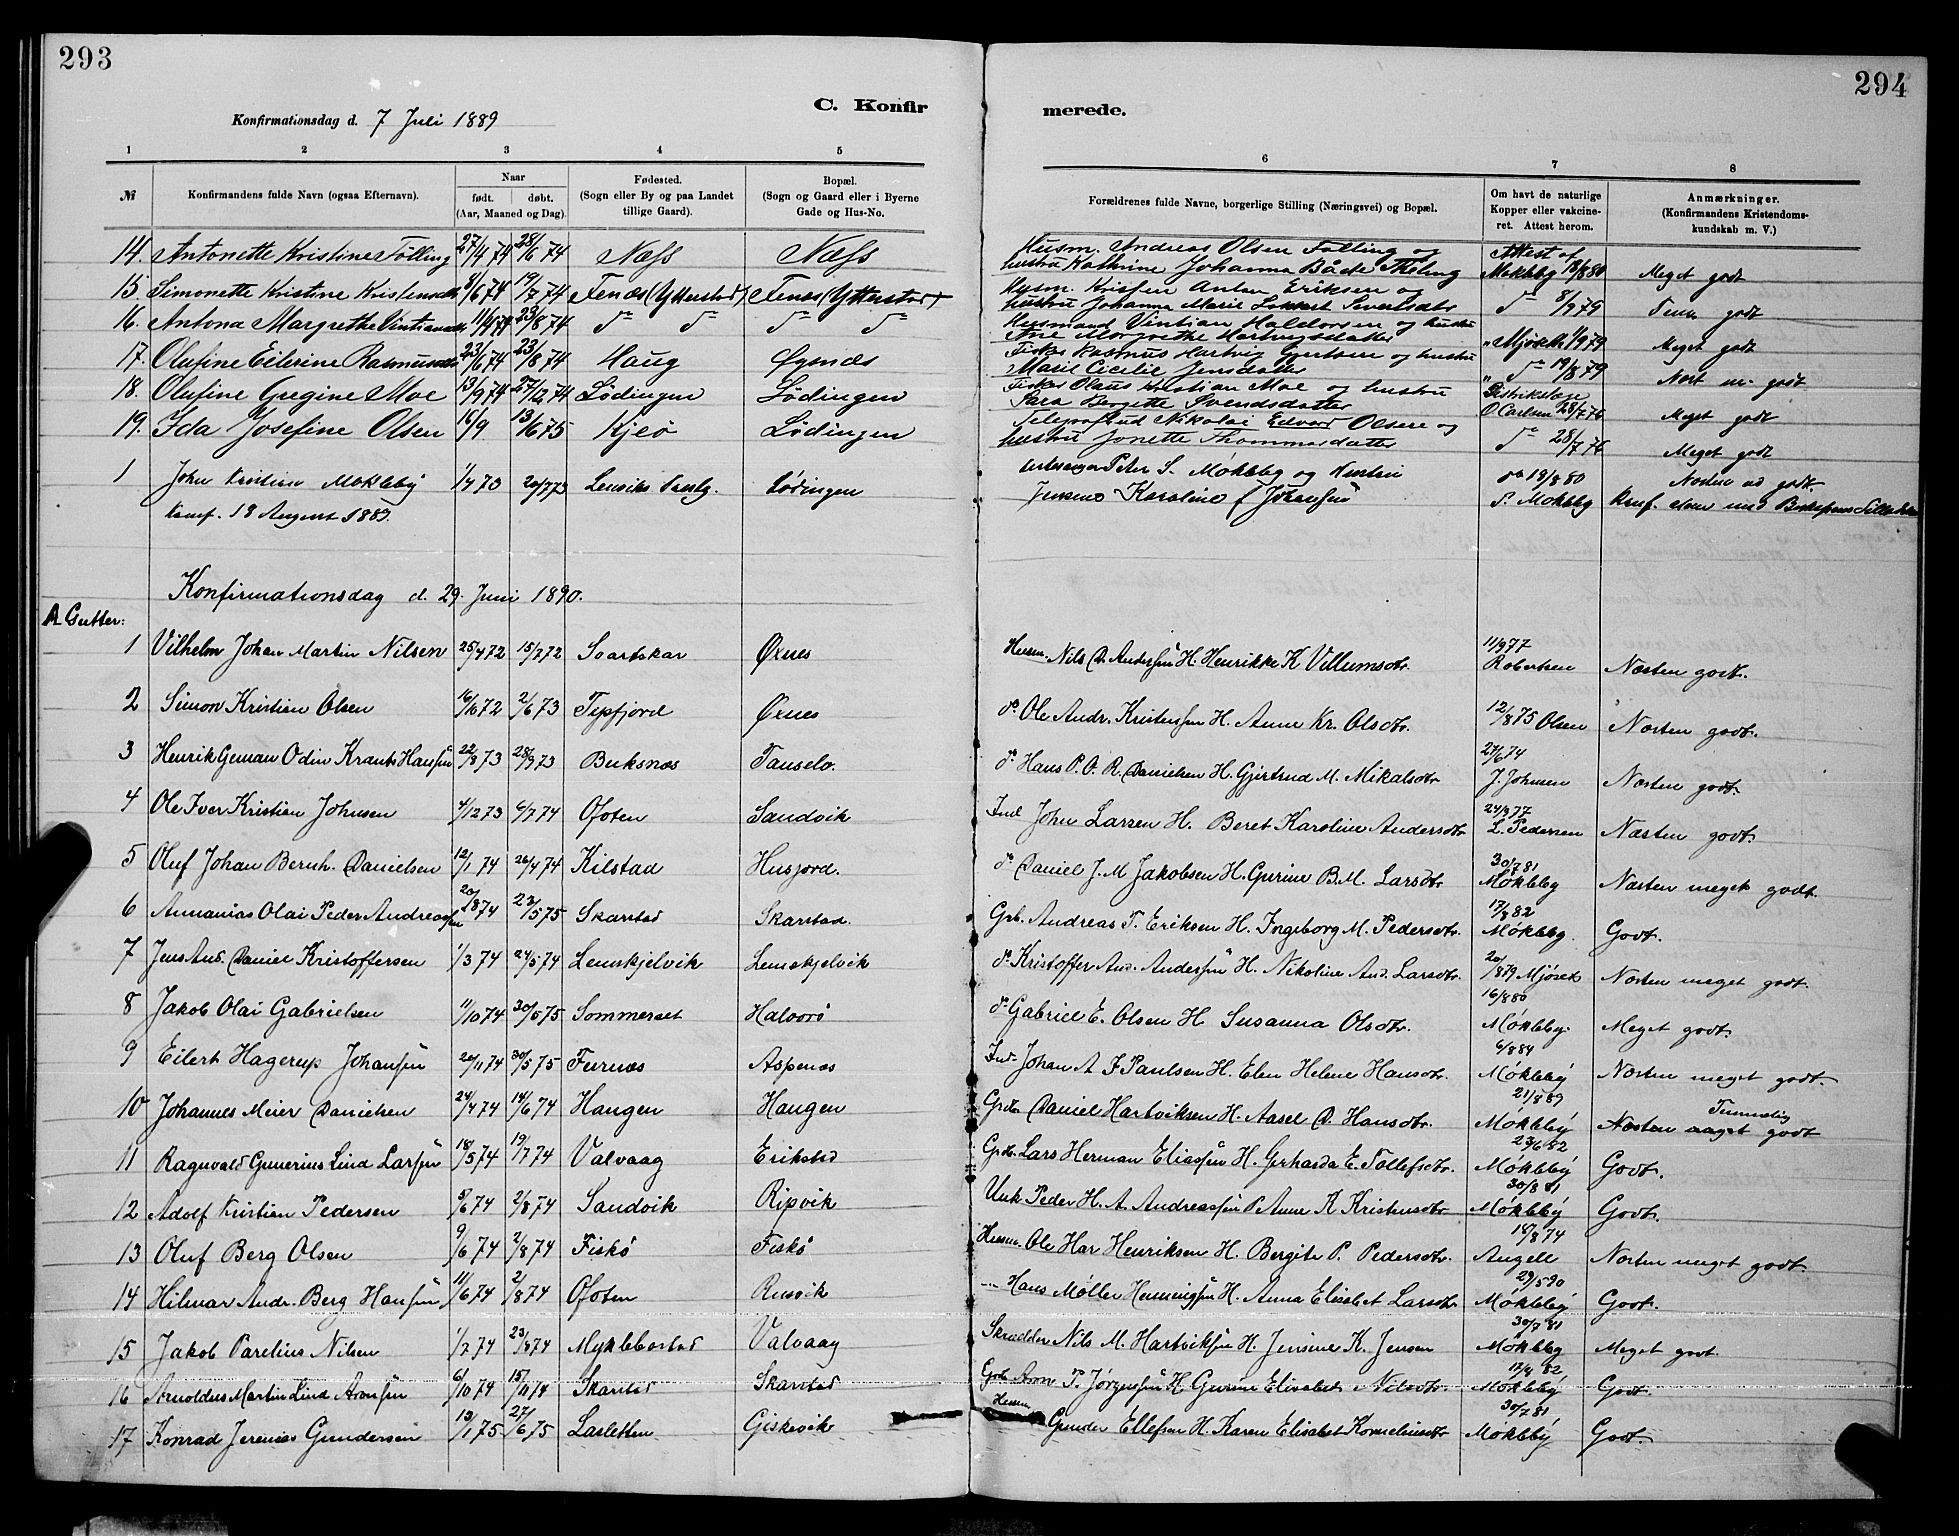 293
294
C. Konfir
merede.
Konfirmationsdag d. 7 Juli 1889
1 2 3 4 5 6 7 8
№ Konfirmandens fulde Navn (ogsaa Efternavn). Naar født. døbt. (Aar, Maaned og Dag). Fødested. (Sogn eller By og paa Landet tillige Gaard). Bopæl. (Sogn og Gaard eller i Byerne Gade og Hus-No. Forældrenes fulde Navne, borgerlige Stilling (Næringsvei) og Bopæl. Om havt de naturlige Kopper eller vakcineret. Attest herom. Anmærkninger. (Konfirmandens Kristendomskundskab m. V.)
14. Antonette Kristine Tølling 27/4 74 28/6 74 Næss Næss Husm. Andreas Olsen Tølling og hustru Kathrine Johanna Attest af Mokleby 18/8 80 Meget godt
15. Simonette Kristine 8/6 74 19/7 74 Fenæs (Ytterstad) Fenæs (Ytterstad) Husm. Anton Eriksen og hustru Johanna Marie do 8/9 79 godt
16. Antona Margrethe 23/8 74 do do do do Husmand Vintian Haldorsen og hustru Margrethe Hartvigsdatter Meget godt
17. Olufine Eilerine 23/6 74 23/8 74 Haug Øynæs Fisker Rasmus Hartvig og hustru Marie Cicilie Jensdatter do 19/8 79 godt
18. Olufine Gregine Moe 13/9 74 27/12 74 Lødingen Lødingen Fisker Olaus Kristian Moe og hustru Sara Bergitte Svendsdatter O Carlsen 28/7 76 Meget godt
19. Ida Josefine Olsen 16/9 13/6 75 Kjeø Lødingen Nikolai Edvard Olsen og hustru Jonette Thommasdatter do 28/7 76 Meget godt
1 John Kristian Mokleby 1/4 73 20/7 73 Lødingen Peter S. Mokleby og Hustru 18/8 80 godt.
Konf. 18 August 1889. Karoline f Johansen S. Mokleby Konf.
Konfirmationsdag d. 29. Juni 1890.
A Gutter:
1 Vilhelm Johan Martin Nilsen 25/4 72 15/7 72 Svartskar Øxnes Husm. Nils D. Anderssen H. Henrikke K Villumsdtr. 11/9 77 Robertsen Næsten godt.
2 Simon Kristian Olsen 16/10 72 2/6 73 Tepfjord Øxnes do Ole Andr. Kristensen H. Anne Kr. Olsdtr. 12/8 75 Olsen Næsten godt.
3 Henrik German Odin Krantz Hansen 22/8 73 28/9 73 Buksnæs Tanselv. do Hans P. O. R. Danielsen H. Gjertrud M. Mikalsdtr 27/6 74 J. Johnsen Næsten godt.
4 Ole Iver Kristian Johnsen 4/12 73 6/7 74 Ofoten Sandvik Ind John Larsen H. Beret Karoline Andersdtr 24/9 77 L. Pedersen Næsten godt.
5 Oluf Johan Bernh. Danielsen 12/1 74 26/4 74 Kilstad Husjord. do Daniel J. M Jakobsen H. Gurine B. M. Larsdtr 30/7 81 Mökleby Næsten meget godt.
6 Annanias Olai Peder Andreassen 20/8 74 23/5 75 Skarstad Skarstad. Grb. Andreas T. Eriksen H. Ingeborg M. Pedersdtr. 17/8 82 Mökleby. Godt.
7 Jens And. Daniel Kristoffersen 1/3 74 24/5 74 Lemskjelvik Lemskjelvik do Kristoffer And. Anderssen H. Nikoline And. Larsdtr. 20/8 79 Mjöset Næsten meget godt.
8 Jakob Olai Gabrielsen 11/10 74 30/5 75 Sommerset Halvorö do Gabriel E. Olsen H Susanna Olsdtr. 16/8 80 Mökleby. Meget godt.
9 Eilert Hagerup Johansen 20/11 74 30/5 75 Furnæs Aspenæs Ind. Johan A F Paulsen H. Elen Helene Hansdtr. 6/8 84 Mökleby Næsten meget godt.
10 Johannes Meier Danielsen 24/4 74 14/6 74 Haugen Haugen Grdbr Daniel Hartviksen H. Aasel D. Hansdtr. 21/5 89 Mökleby Temmelig godt
11 Ragnvald Gunerius Lind Larsen 18/5 74 19/7 74 Valvaag Erikstad Grdb. Lars Herman Eliassen H. Gerharda E. Tollefsdtr. 23/6 82 Mökleby Godt.
12 Adolf Kristian Pedersen 5/6 74 2/8 74 Sandvik Ripvik Unk Peder H. A. Andreassen P Anne K Kristensdtr 30/8 81 Mökleby Godt.
13 Oluf Berg Olsen 9/6 74 2/8 74 Fiskö Fiskö Husm. Ole Har Henriksen H. Bergite P. Pedersdtr. 18/8 74 Angell Næsten meget godt.
14 Hilmar Andr. Berg Hansen 11/6 74 2/8 74 Ofoten Rusvik Hans Møller Henningsen H. Anna Elisabet Larsdtr 29/5 90 Mökleby Godt.
15 Jakob Parelius Nilsen 1/7 74 23/8 74 Myklebostad Valvaag Skrædder Nils M. Hartviksen H. Jensine K. Jensen 30/7 81 Mökleby Meget godt.
16 Arnoldus Martin Lind Aronsen 6/10 74 15/11 74 Skarstad Skarstad Grb Aron P. Jørgensen H Gurine Elisabet Nilsdtr. 17/8 82 Mökleby Godt.
17 Konrad Jeremias Gundersen 13/1 75 27/6 75 Lasletten Giskevik Husm. Gunder Ellefsen H. Karen Elisabet Korneliusdtr 30/7 81 Mökleby Godt.